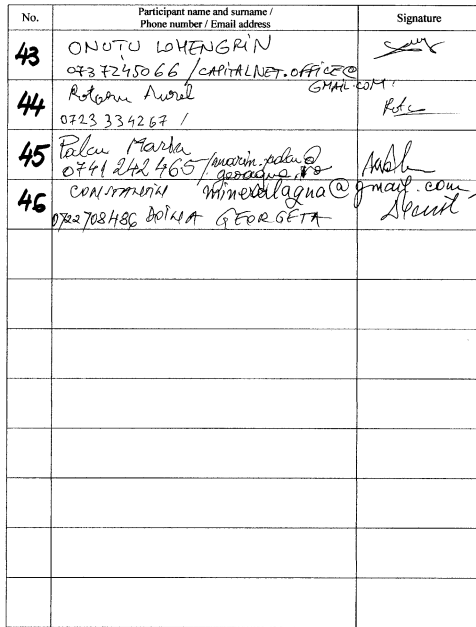 No. Participant name and surname / Signature
Phone number / Email address
43 ONUTU LOHENGRIN
0737245066 / CAPITALNET.OFFICE@
GMAIL.COM
44 Rotaru Aurel
0723 334267 /
45 Palcu Marin
0741 242 465 / marin.palcu@
46 CONSTANDIN mineralagua@gmail.com
0722708486 DOINA GEORGETA